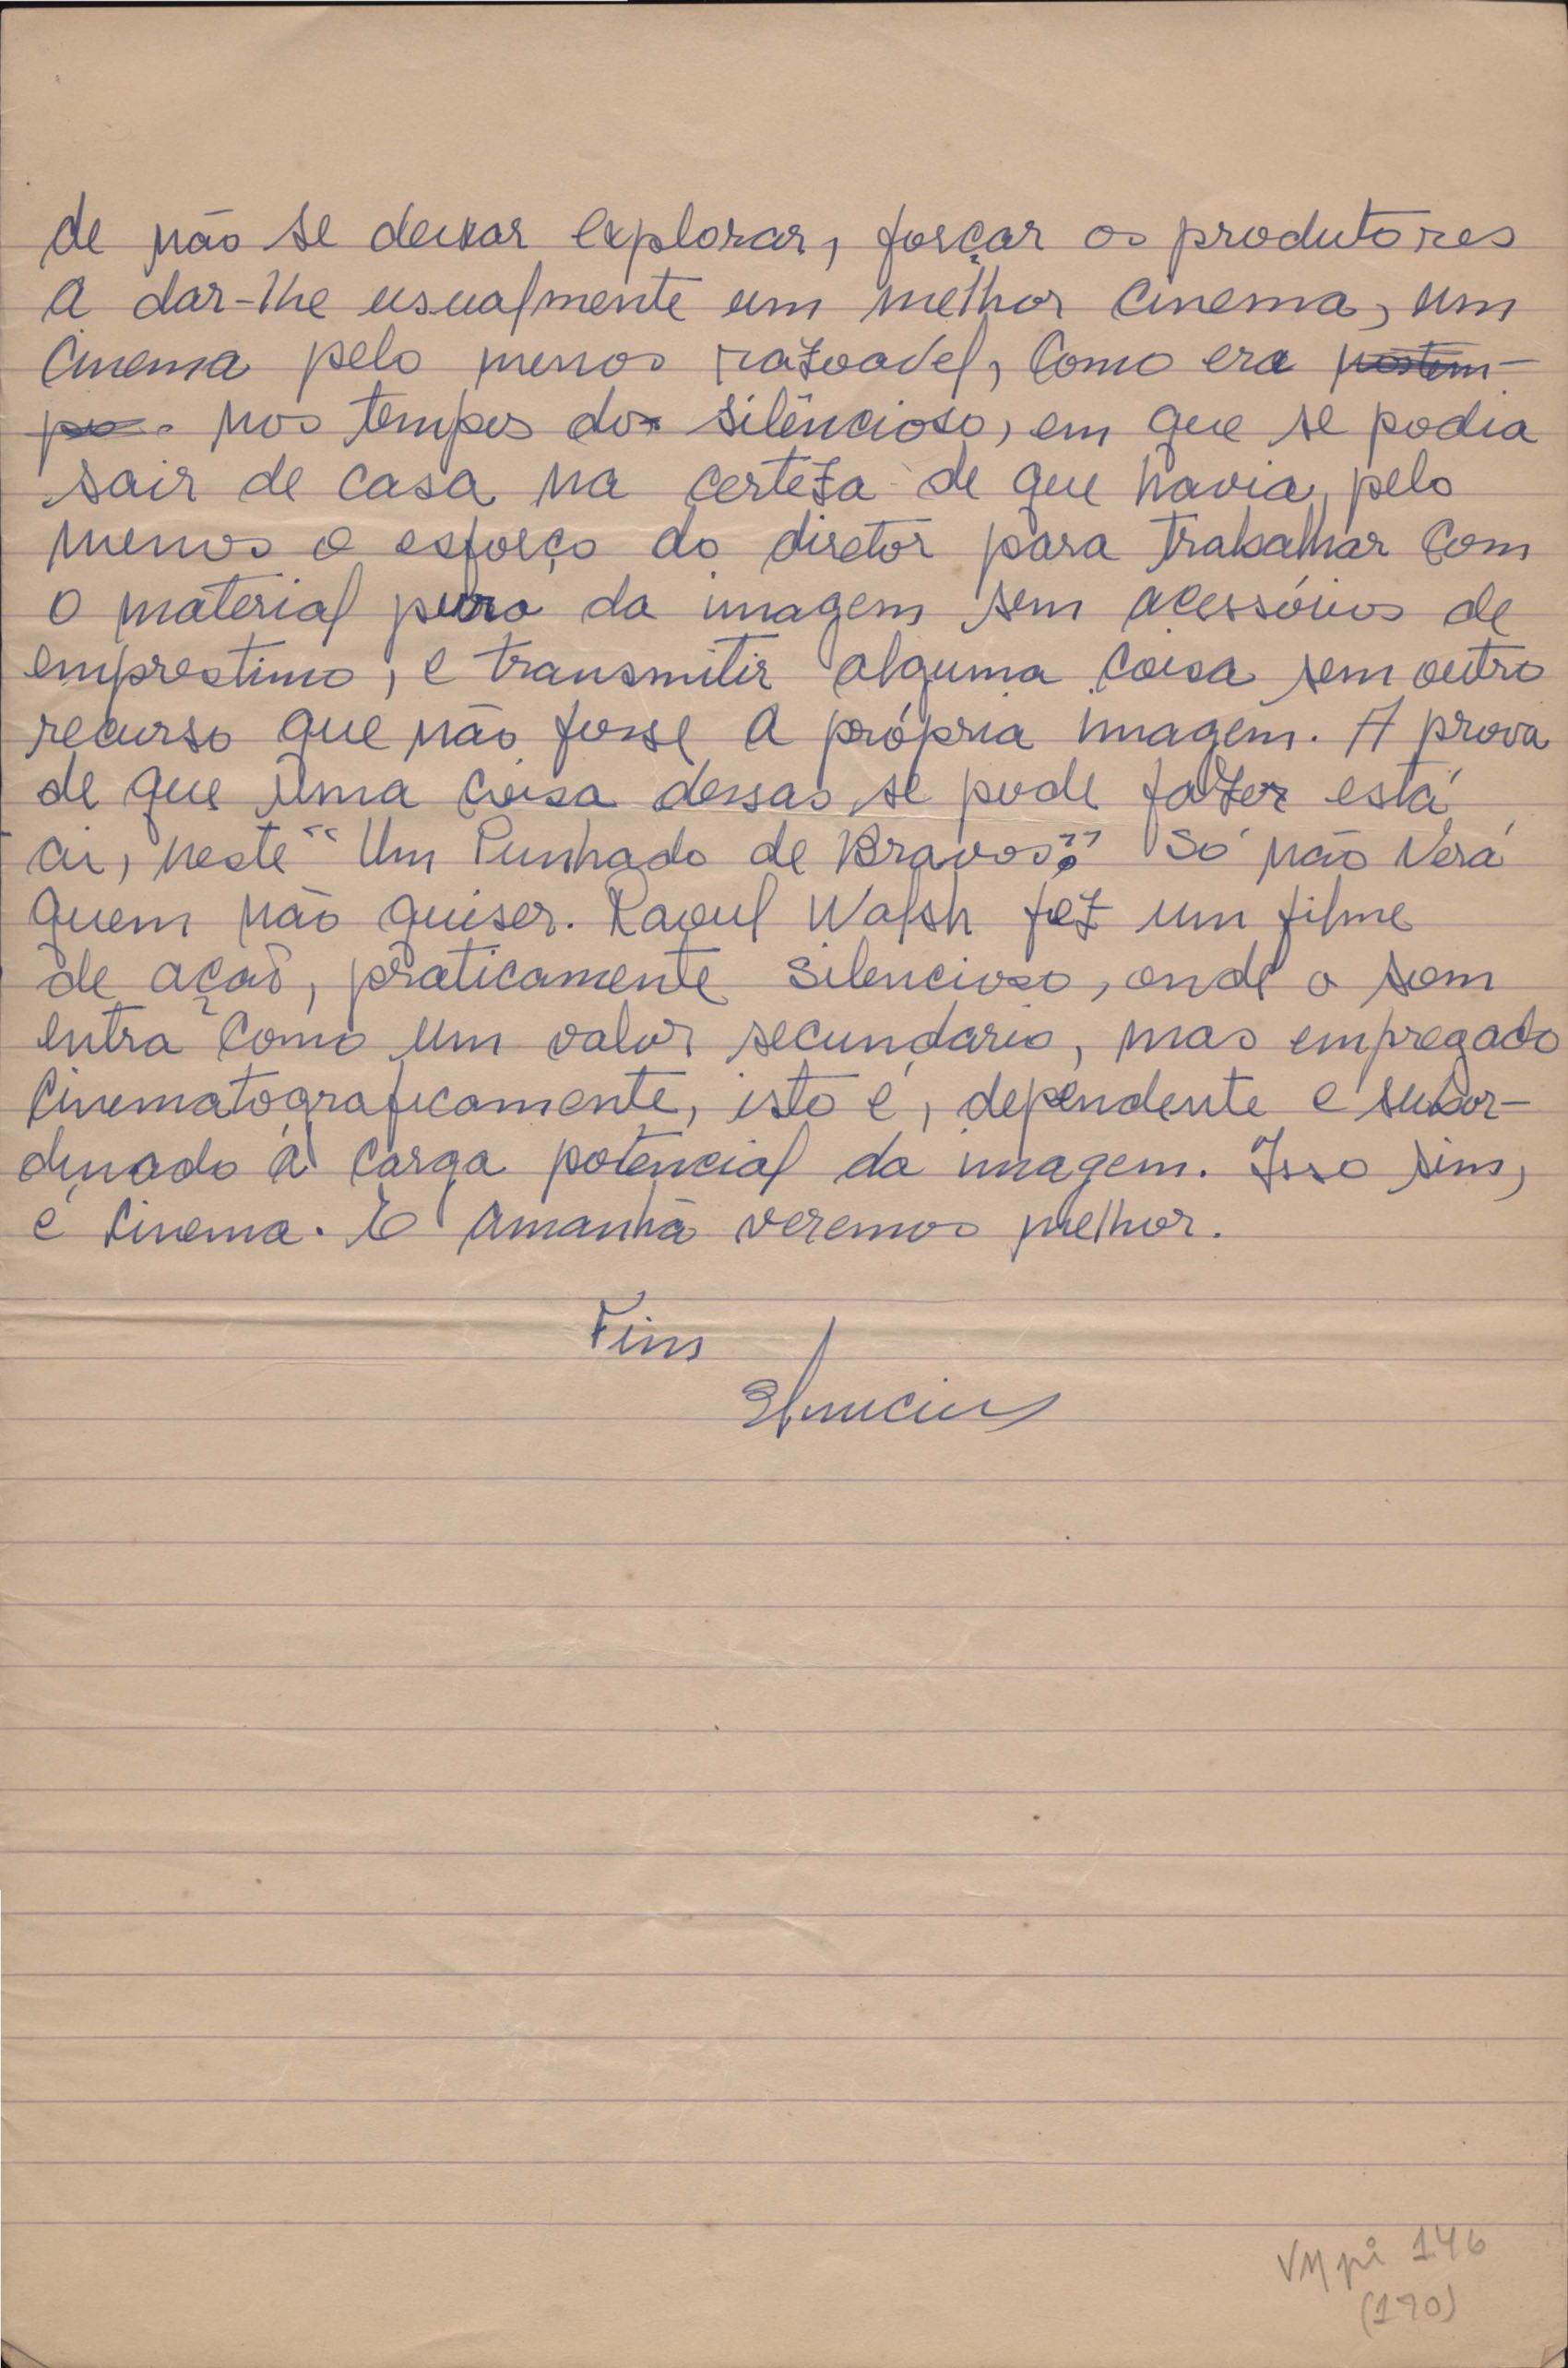 de não se deixar explorar, forçar os produtores
a dar-lhe usualmente um melhor cinema, um
cinema pelo menos razoavel, como era nostem-
po. nos tempos do silêncioso, em que se podia
sair de casa na certeza de que havia, pelo
menos o esforço do diretor para trabalhar com
o material puro da imagem sem acessórios de
emprestimo, e transmitir alguma coisa sem outro
recurso que não fosse a própria imagem. A prova
de que uma coisa dessas se pode fazer está
ai, neste "Um Punhado de Bravos". Só não verá
quem não quiser. Raoul Walsh fez um filme
de ação, praticamente silencioso, onde o som
entra como um valor secundario, mas empregado
cinematograficamente, isto é, dependente e subor-
dinado á carga potencial da imagem. Isso sim,
é cinema. E amanhã veremos melhor.
Fim
VM pi 146
(190)